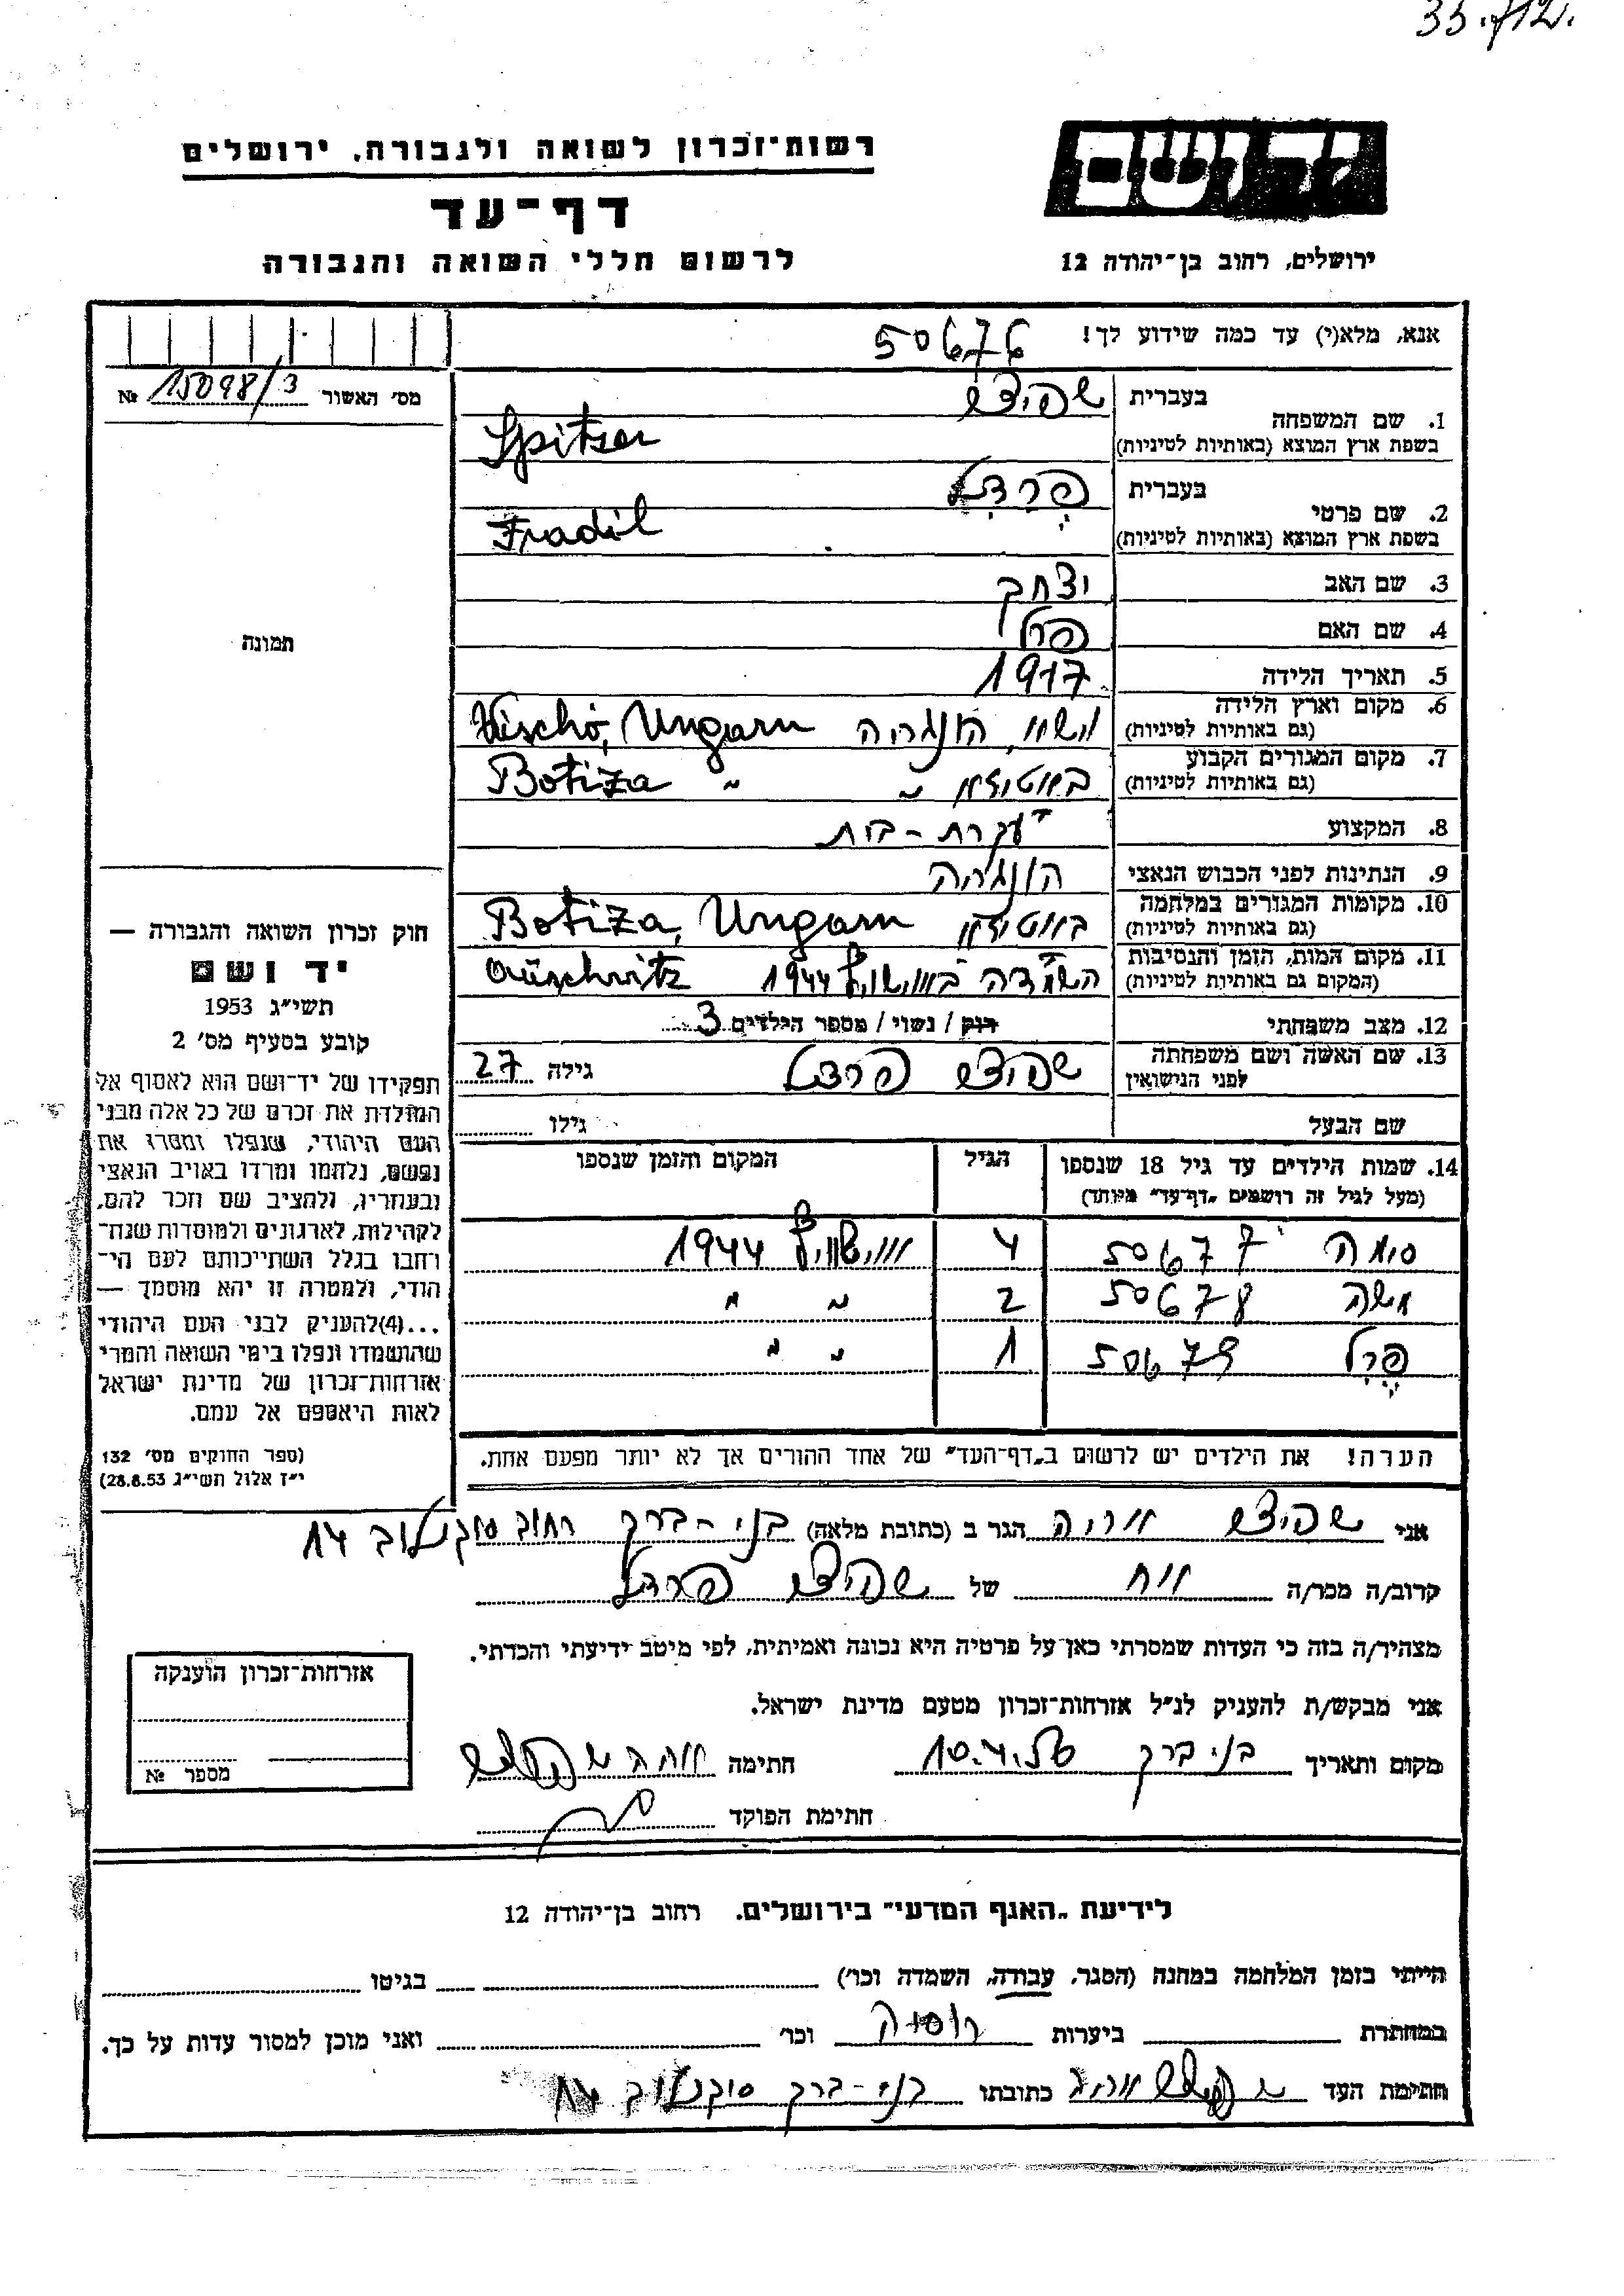 35.712.
רשות־זכרון לשואה ולגבורה, ירושלים
יד ושם
דף־עד
לרשום חללי השואה והגבורה
ירושלים, רחוב בן־יהודה 12
אנא, מלא(י) עד כמה שידוע לך!
50676
מס׳ האשור № 15098/3
1. שם המשפחה בעברית שפיצר
בשפת ארץ המוצא (באותיות לטיניות) Spitzer
2. שם פרטי בעברית פרדל
בשפת ארץ המוצא (באותיות לטיניות) Fradil
3. שם האב יצחק
4. שם האם פרל
5. תאריך הלידה 1917
6. מקום וארץ הלידה הונגריה Ungarn
(גם באותיות לטיניות)
7. מקום המגורים הקבוע Botiza "
(גם באותיות לטיניות)
8. המקצוע עקרת-בית
9. הנתינות לפני הכבוש הנאצי הונגריה
10. מקומות המגורים במלחמה Botiza, Ungarn
(גם באותיות לטיניות)
11. מקום המות, הזמן והנסיבות 1944
(המקום גם באותיות לטיניות)
12. מצב משפחתי רוק / נשוי / מספר הילדים 3
13. שם האשה ושם משפחתה לפני הנישואין שפיצר פרדל גילה 27
שם הבעל גילו
14. שמות הילדים עד גיל 18 שנספו הגיל המקום והזמן שנספו
(מעל לגיל זה רושמים „דף־עד" מיוחד)
סימה 50677 4 אושוויץ 1944
משה 50678 2 " "
פרל 50679 1 " "
הערה! את הילדים יש לרשום ב„דף־העד" של אחד ההורים אך לא יותר מפעם אחת.
תמונה
חוק זכרון השואה והגבורה —
יד ושם
תשי״ג 1953
קובע בסעיף מס׳ 2
תפקידו של יד־ושם הוא לאסוף אל
המולדת את זכרם של כל אלה מבני
העם היהודי, שנפלו ומסרו את
נפשם, נלחמו ומרדו באויב הנאצי
ובעוזריו, ולהציב שם וזכר להם,
לקהילות, לארגונים ולמוסדות שנח־
רחבו בגלל השתייכותם לעם הי־
הודי, ולמטרה זו יהא מוסמך —
...(4)להעניק לבני העם היהודי
שהושמדו ונפלו בימי השואה והמרי
אזרחות־זכרון של מדינת ישראל
לאות היאספם אל עמם.
(ספר החוקים מס׳ 132
י״ז אלול תשי״ג 28.8.53)
אני שפיצר אריה הגר ב (כתובת מלאה) בני-ברק רחוב סוקולוב 14
קרוב/ה מכר/ה אח של שפיצר פרדל
מצהיר/ה בזה כי העדות שמסרתי כאן על פרטיה היא נכונה ואמיתית, לפי מיטב ידיעתי והכרתי.
אני מבקש/ת להעניק לנ״ל אזרחות־זכרון מטעם מדינת ישראל.
מקום ותאריך בני ברק 10.4.56 חתימה אריה שפיצר
חתימת הפוקד
אזרחות־זכרון הוענקה
מספר №
לידיעת „האגף המדעי" בירושלים. רחוב בן־יהודה 12
הייתי בזמן המלחמה במחנה (הסגר, עבודה, השמדה וכר׳) בגיטו
במחתרת ביערות רוסיה וכר׳ ואני מוכן למסור עדות על כך.
חתימת העד שפיצר אריה כתובתו בני-ברק סוקולוב 14